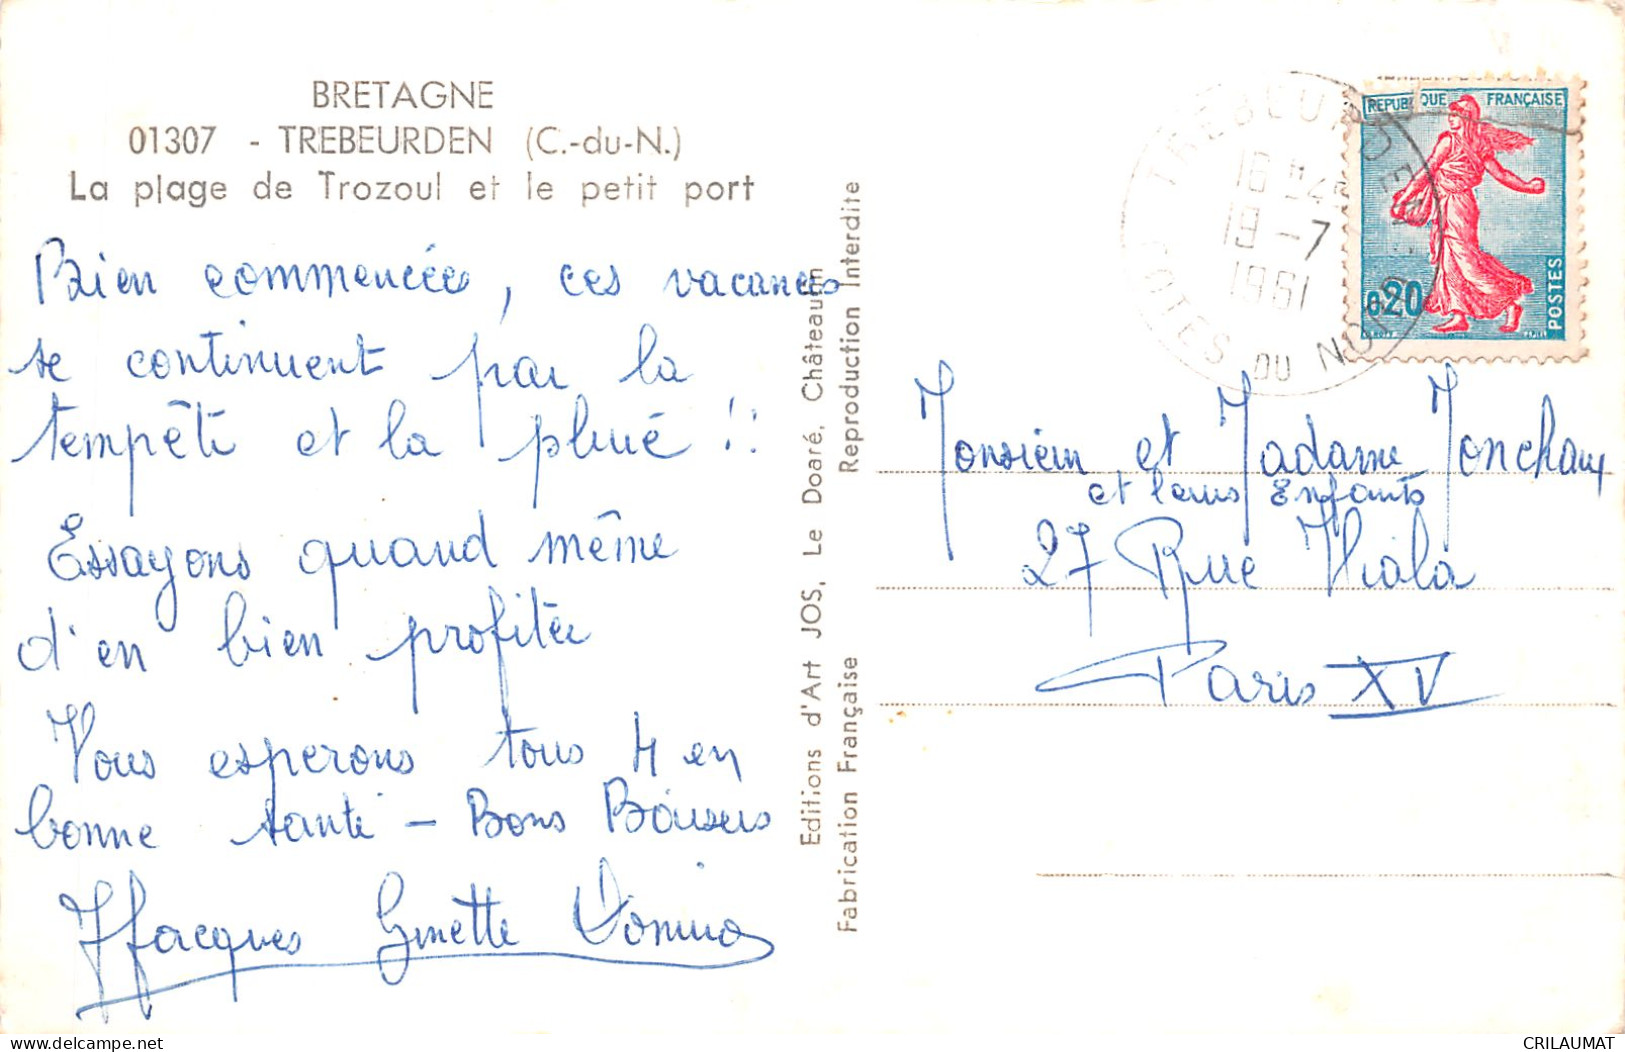 BRETAGNE
01307 - TREBEURDEN (C.-du-N.)
La plage de Trozoul et le petit port
Bien commencées, ces vacances
se continuent par la
tempête et la pluie !!
Essayons quand même
d'en bien profiter
Vous esperons tous 4 en
bonne santé - Bons Baisers
Jacques Ginette
Editions d'Art JOS, Le Doaré, Châteaulin
Fabrication Française Reproduction Interdite
TREBEURDEN
19 -7
1961
COTES DU NORD
REPUBLIQUE FRANÇAISE
0,20
POSTES
Monsieur et Madame Monchaux
et leurs Enfants
27 Rue Viala
Paris XV
CRILAUMAT